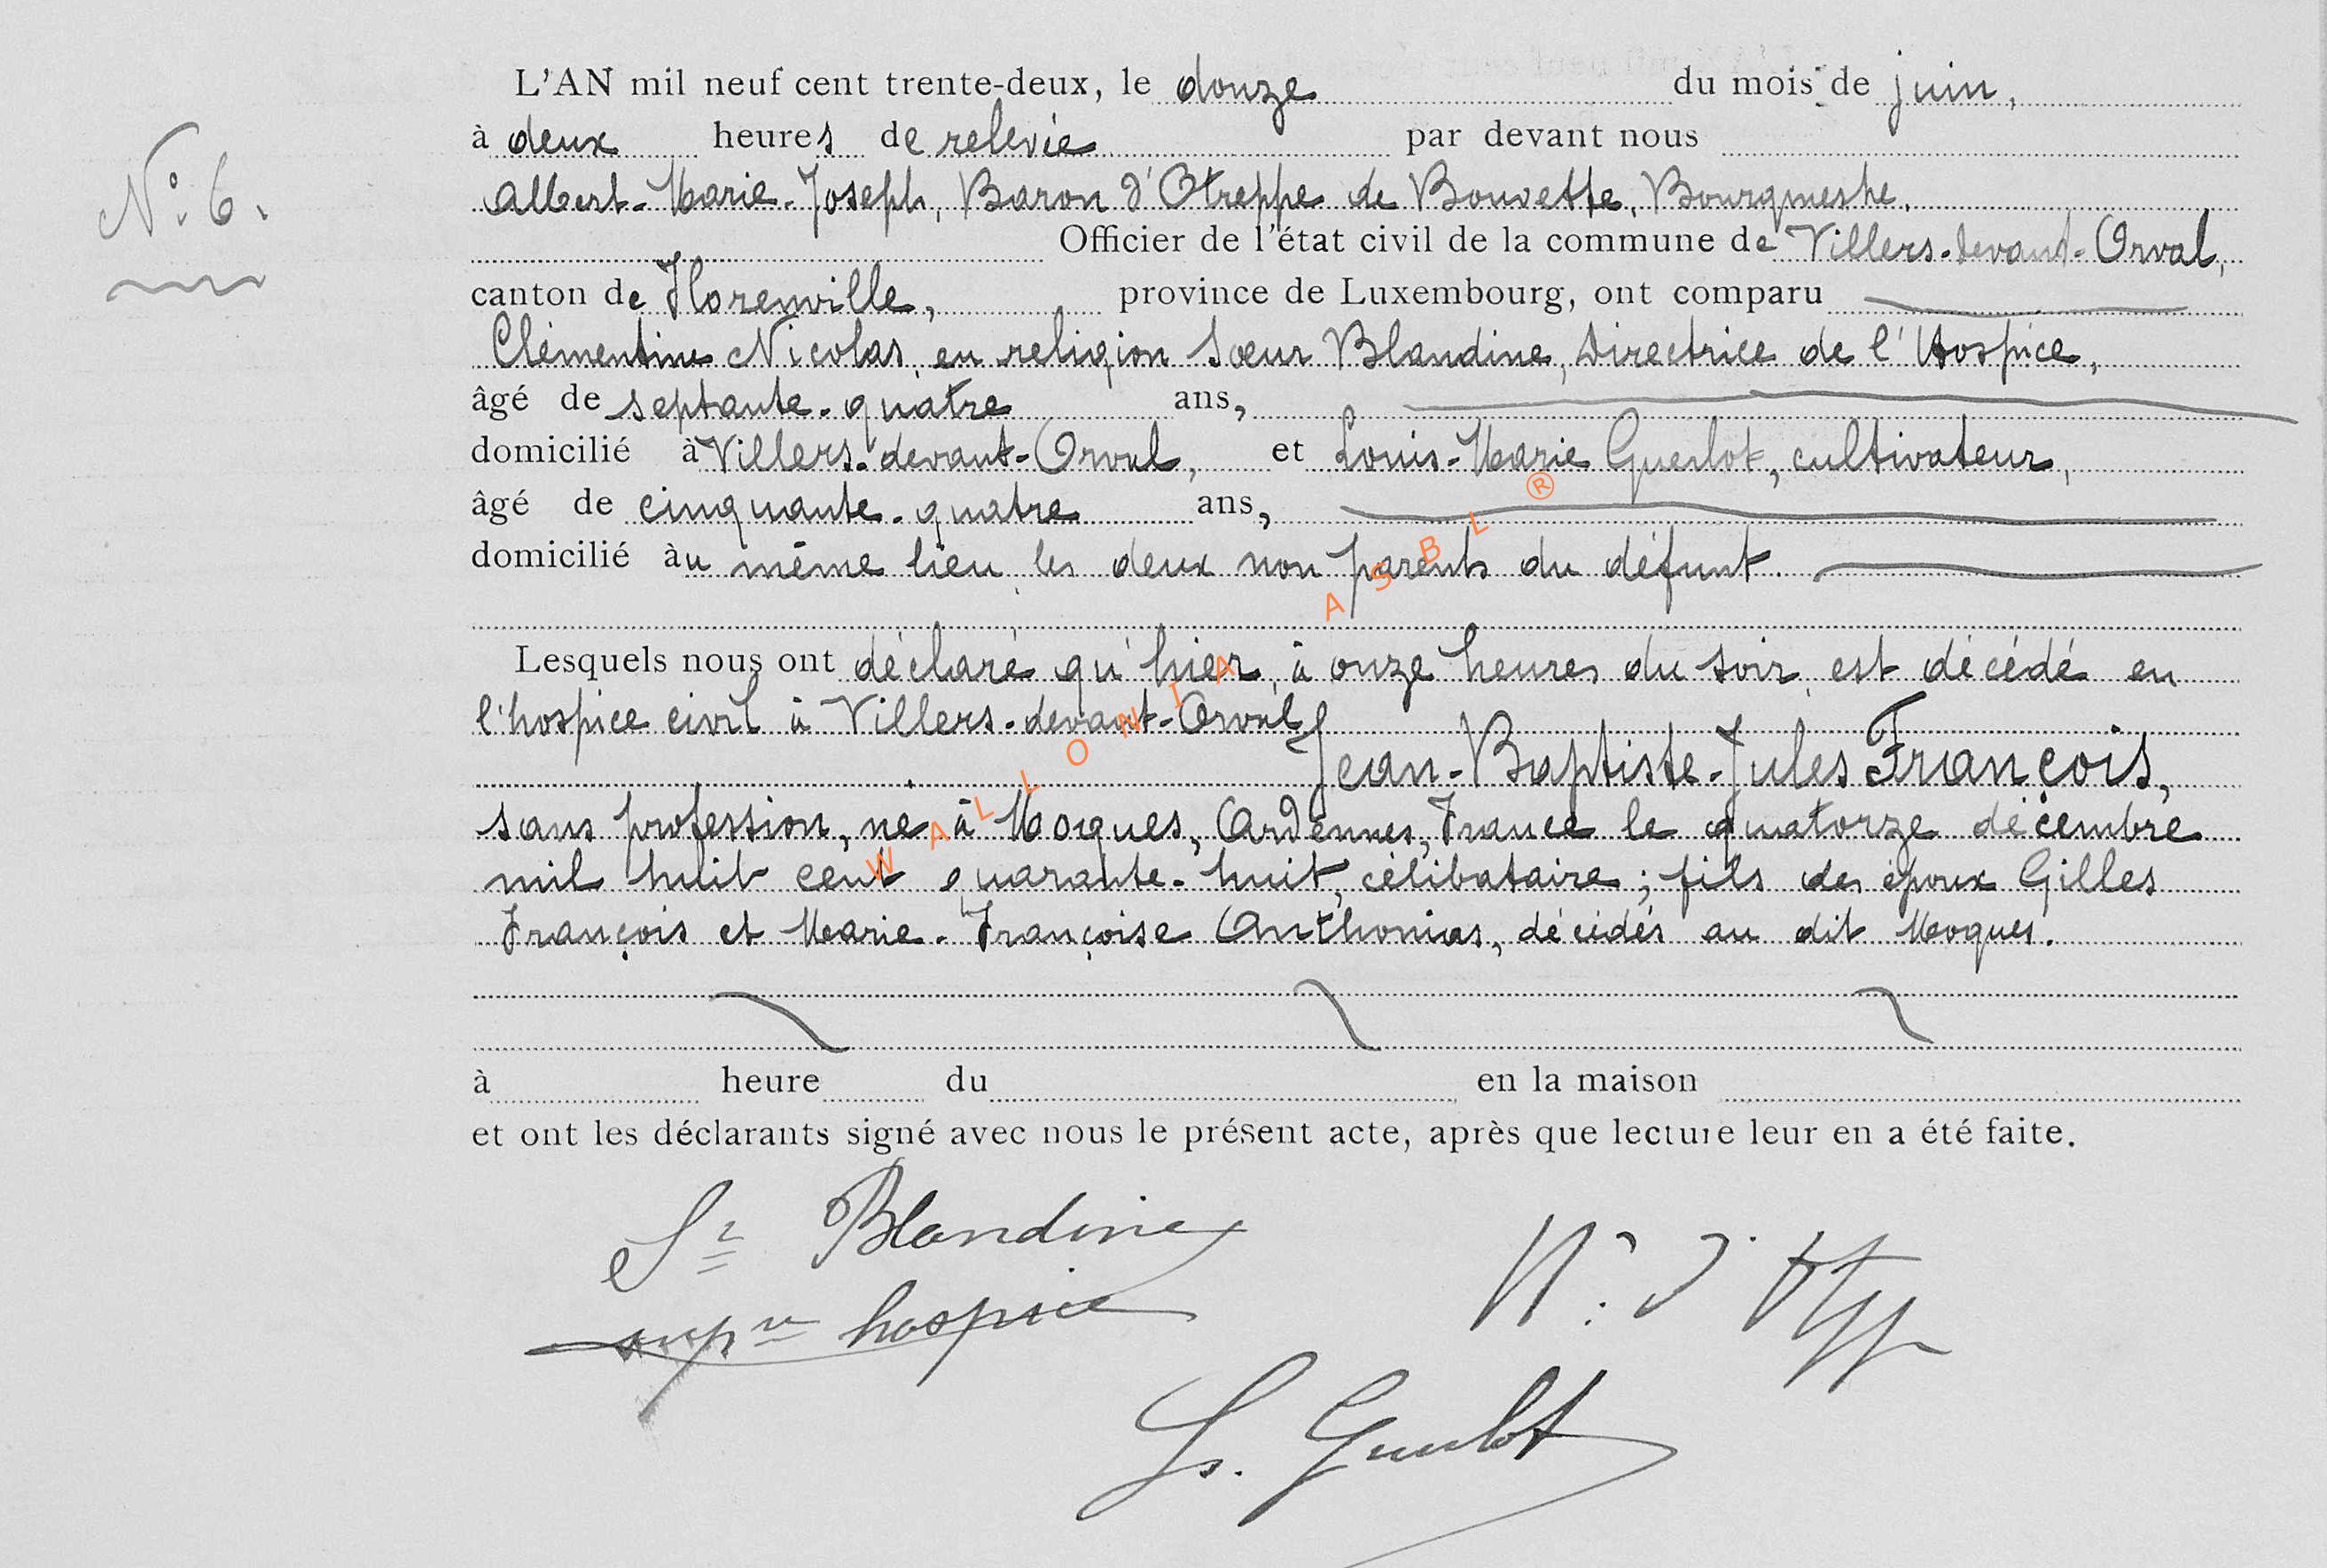 L'AN mil neuf cent trente-deux, le douze du mois de juin,
à deux heures de relevée par devant nous
N° 6.
Albert-Marie-Joseph, Baron d'Otreppe de Bouvette, Bourgmestre,
Officier de l'état civil de la commune de Villers-devant-Orval,
canton de Florenville, province de Luxembourg, ont comparu
Clémentine Nicolas, en religion Sœur Blandine, Directrice de l'Hospice,
âgé de septante-quatre ans,
domicilié à Villers-devant-Orval, et Louis-Marie Guerlot, cultivateur,
âgé de cinquante-quatre ans,
domicilié àu même lieu, les deux non parents du défunt.
Lesquels nous ont déclaré qu'hier, à onze heures du soir, est décédé en
l'hospice civil à Villers-devant-Orval
Jean-Baptiste-Jules François,
sans profession, né à Mogues, Ardennes, France le quatorze décembre
mil huit cent quarante-huit, célibataire; fils des époux Gilles
François et Marie-Françoise Anthonias, décédés au dit Mogues.
à heure du en la maison
et ont les déclarants signé avec nous le présent acte, après que lecture leur en a été faite.
Sr Blandine
supre hospice
L. Guerlot
WALLONIA ASBL ®